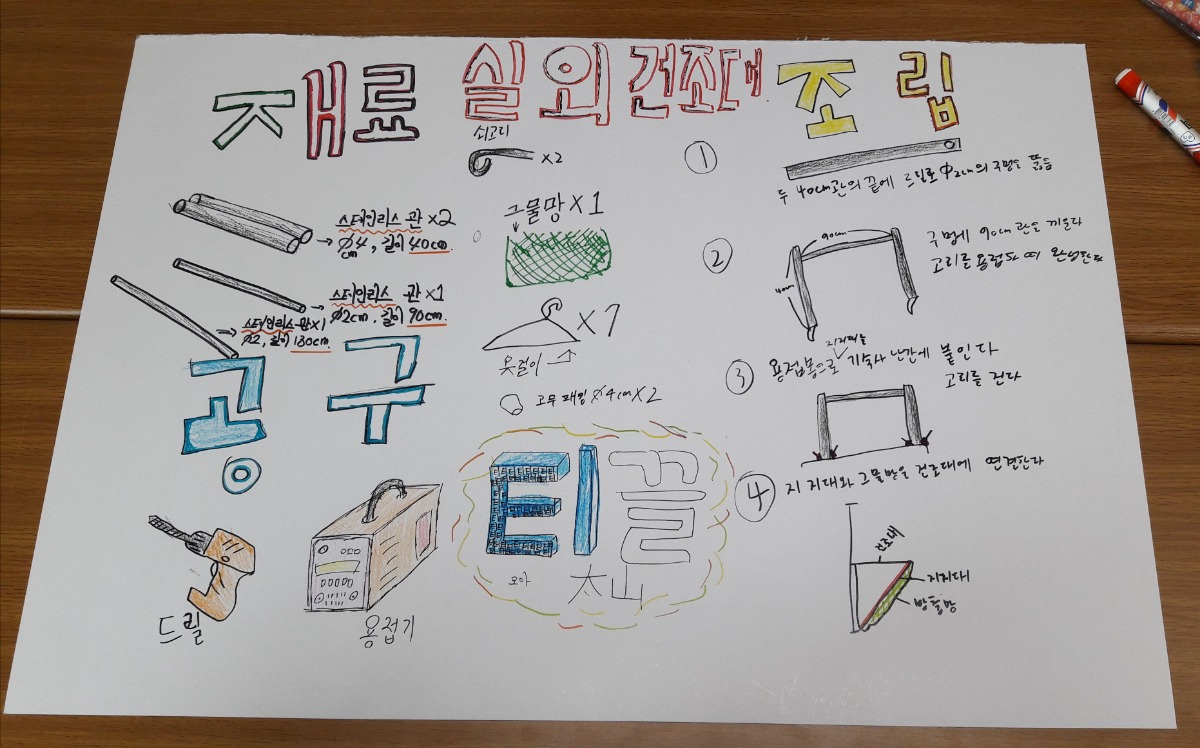 실외 건조대
재료
쇠고리
x2
스테인리스 관 x2
∅4cm, 길이 40cm.
그물망 X 1
스테인리스 관 x1
∅2cm, 길이 90cm.
스테인리스 관 x1
∅2, 길이 130cm.
X 7
옷걸이
고무 패킹 ∅4cm X 2
공구
드릴
용접기
티끌
모아
太山
조립
①
두 40cm관의 끝에 드릴로 Φ2cm의 구멍을 뚫음
②
90cm
40cm
구멍에 90cm 관을 끼운다
고리를 용접하여 완성한다
③
지지대를
용접봉으로 기숙사 난간에 붙인다
고리를 건다
④
지지대와 그물망을 건조대에 연결한다
건조대
지지대